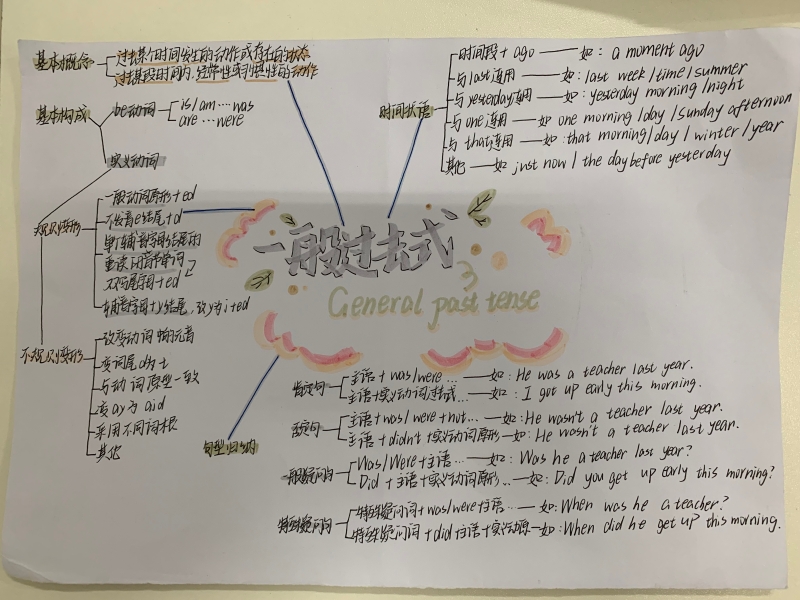 基本概念 过去某个时间发生的动作或存在的状态
过去某段时间内，经常性或习惯性的动作
基本构成 be动词 is/am…was
are…were
实义动词
规则变形 一般动词原形+ed
不发音e结尾+d
单个辅音字母结尾的
重读闭音节单词
双写尾字母+ed
辅音字母+y结尾，改y为i+ed
不规则变形 改变动词中的元音
变词尾d为t
与动词原型一致
变ay为aid
采用不同词根
其他
时间状语 时间段+ago——如：a moment ago
与last连用——如：last week/time/summer
与yesterday连用——如：yesterday morning/night
与one连用——如 one morning/day/Sunday afternoon
与that连用——如：that morning/day/winter/year
其他——如 just now/the day before yesterday
一般过去式
General past tense
句型归纳
肯定句 主语+was/were…——如：He was a teacher last year.
主语+实义动词过去式…——如：I got up early this morning.
否定句 主语+was/were+not…——如：He wasn't a teacher last year.
主语+didn't+实义动词原形—如：He wasn't a teacher last year.
一般疑问句 Was/Were+主语…——如：Was he a teacher last year?
Did+主语+实义动词原形…—如：Did you get up early this morning?
特殊疑问句 特殊疑问词+was/were+主语…—如：When was he a teacher?
特殊疑问词+did+主语+实义动原—如：When did he get up this morning.